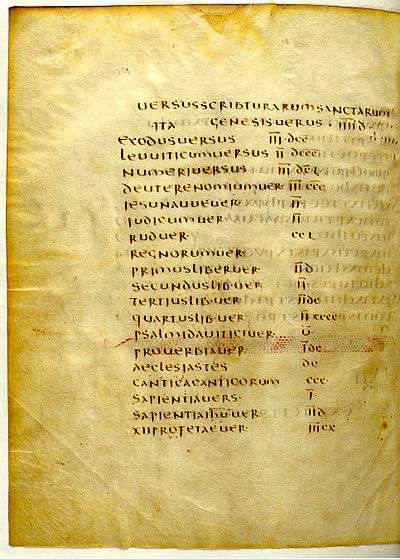 UERSUSSCRIBTURARUMSANCTARUM
ITA GENESISUERUS · I̅I̅I̅I̅D
EXODUSUERSUS I̅I̅I̅DCC
LEUUITICUMUERSUS I̅I̅DCCC
NUMERIUERSUS I̅I̅I̅DCL
DEUTERENOMIUMUER I̅I̅I̅CCC
IESUNAUUEUER· I̅I̅
IUDICUMUER· I̅I̅
RUDUER· CCL
REGNORUMUER·
PRIMUSLIBERUER· I̅I̅D
SECUNDUSLIB·UER· I̅I̅
TERTIUSLIB·UER I̅I̅DC
QUARTUSLIB·UER I̅I̅CCCC
PSALMIDAUITICIUER· U̅
PROUERBIAUER I̅DC
AECLESIASTES DC
CANTICACANTICORUM CCC
SAPIENTIAUERS· I̅
SAPIENTIAI̅H̅U̅UER I̅I̅D
XIIPROFETAEUER· I̅I̅I̅CX